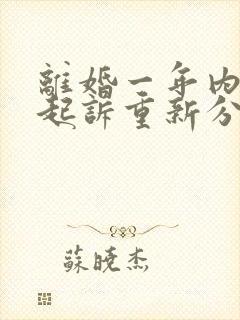 離婚一年內
起訴重新分
蘇曉杰